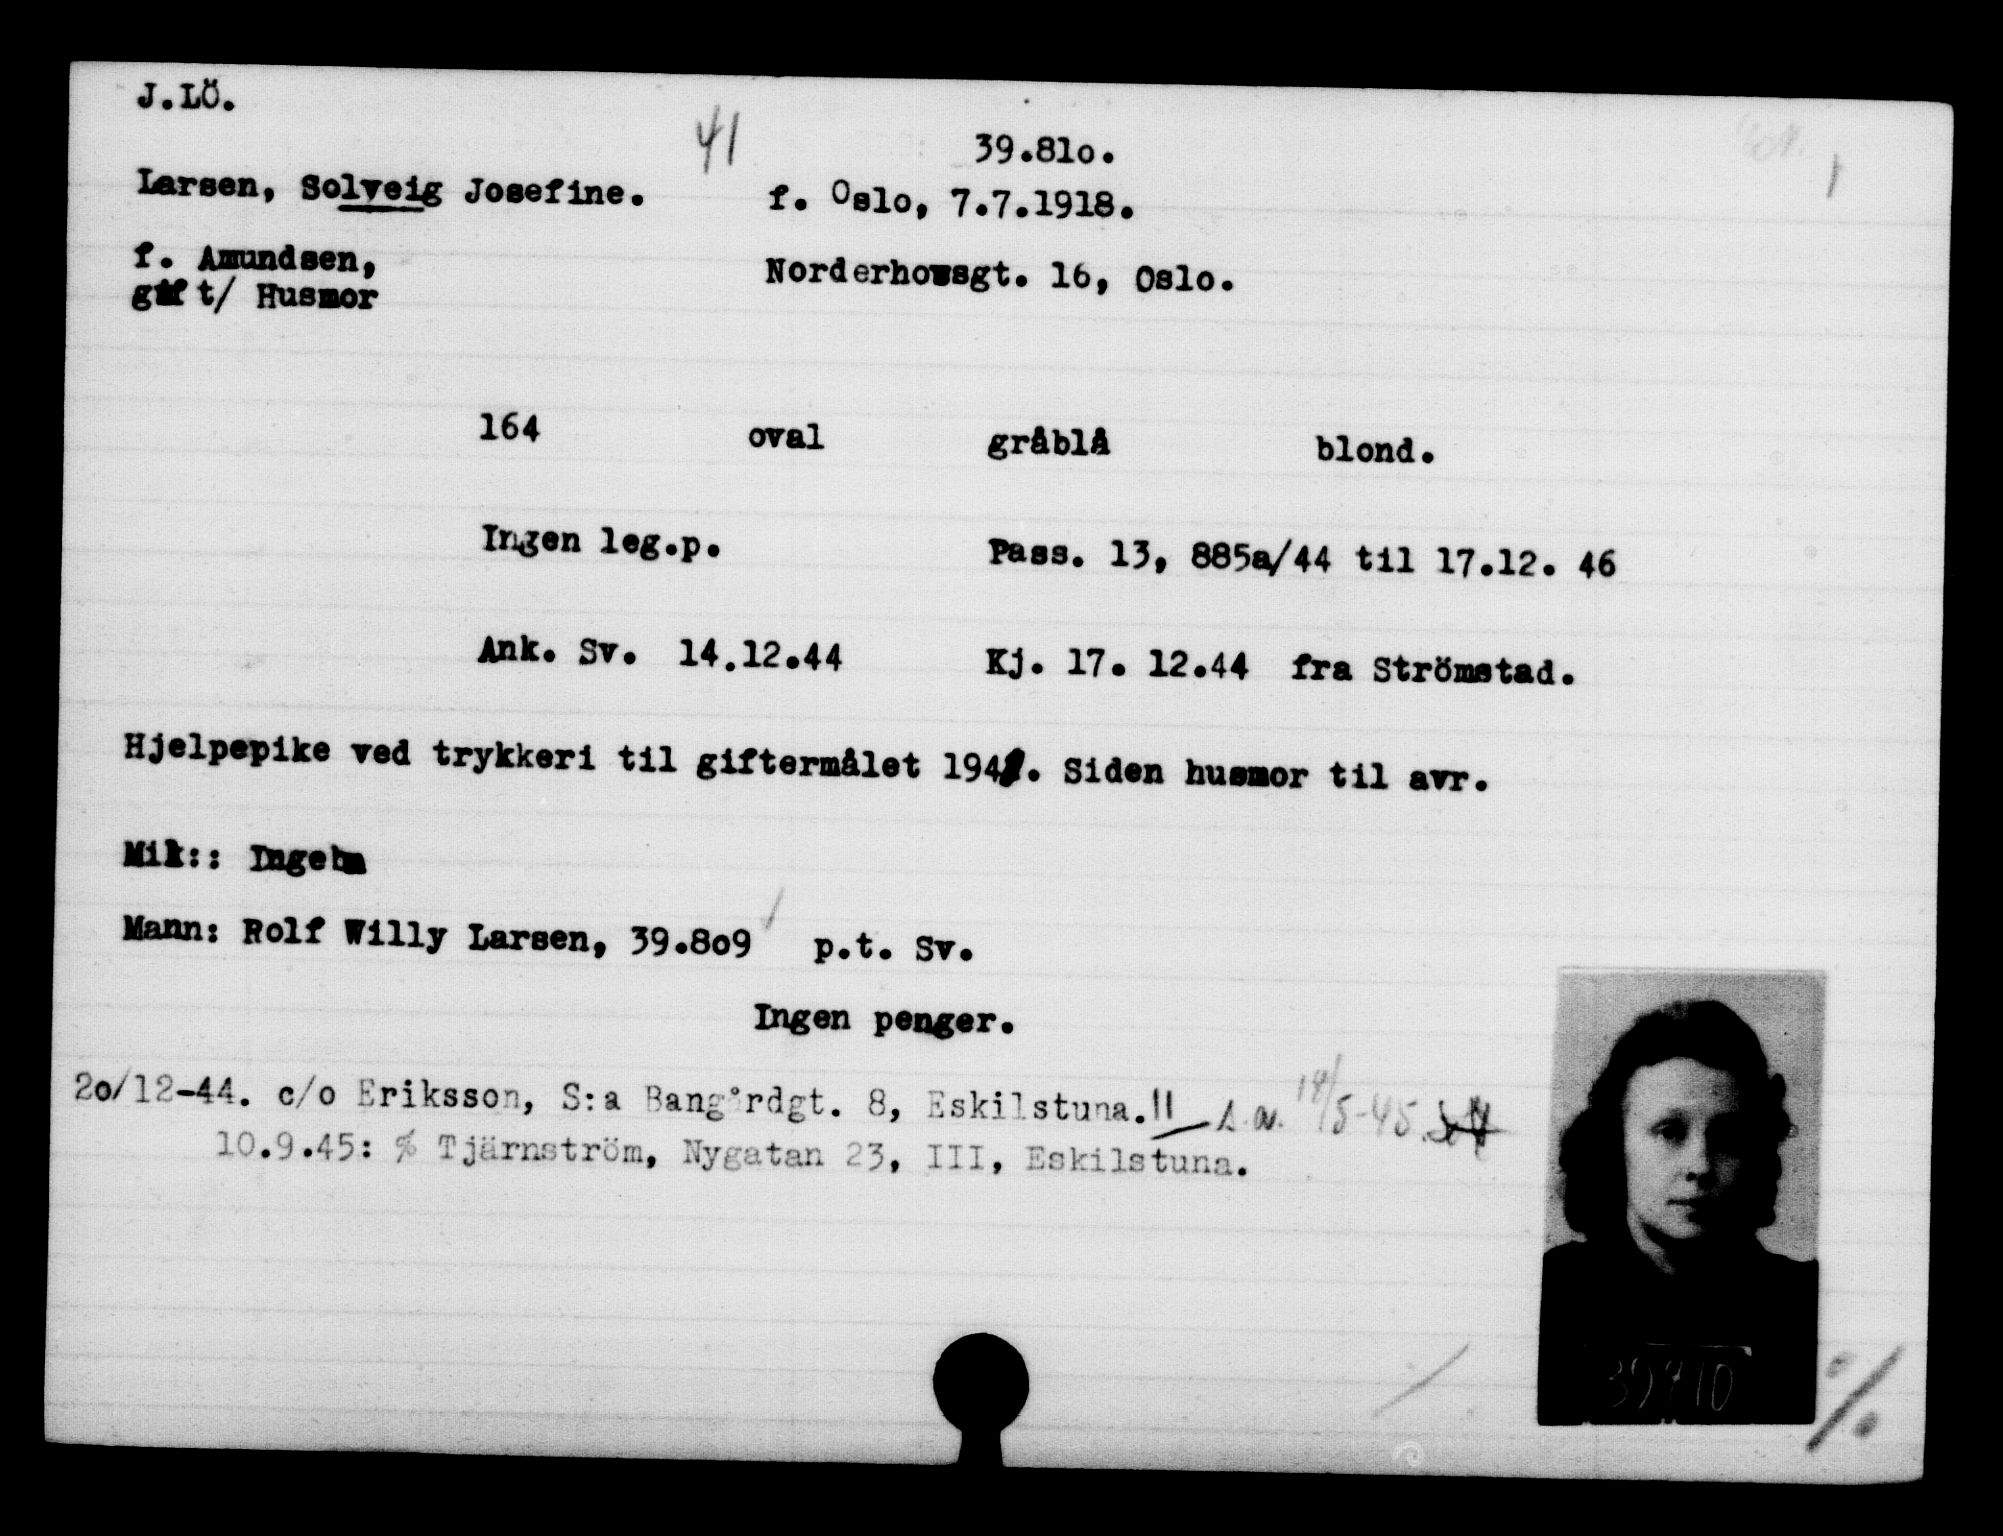 J.LÖ.
41
39.81o.
Larsen, Solveig Josefine.
f. Oslo, 7.7.1918.
f. Amundsen,
gift/ Husmor
Norderhovsgt. 16, Oslo.
164 oval gråblå blond.
Ingen leg.p. Pass. 13, 885a/44 til 17.12. 46
Ank. Sv. 14.12.44 Kj. 17. 12.44 fra Strömstad.
Hjelpepike ved trykkeri til giftermålet 194. Siden husmor til avr.
Mil:: Ingen
Mann: Rolf Willy Larsen, 39.8o9 p.t. Sv.
Ingen penger.
2o/12-44. c/o Eriksson, S:a Bangårdgt. 8, Eskilstuna. s.a. 18/5-45.
10.9.45: % Tjärnström, Nygatan 23, III, Eskilstuna.
39810
%